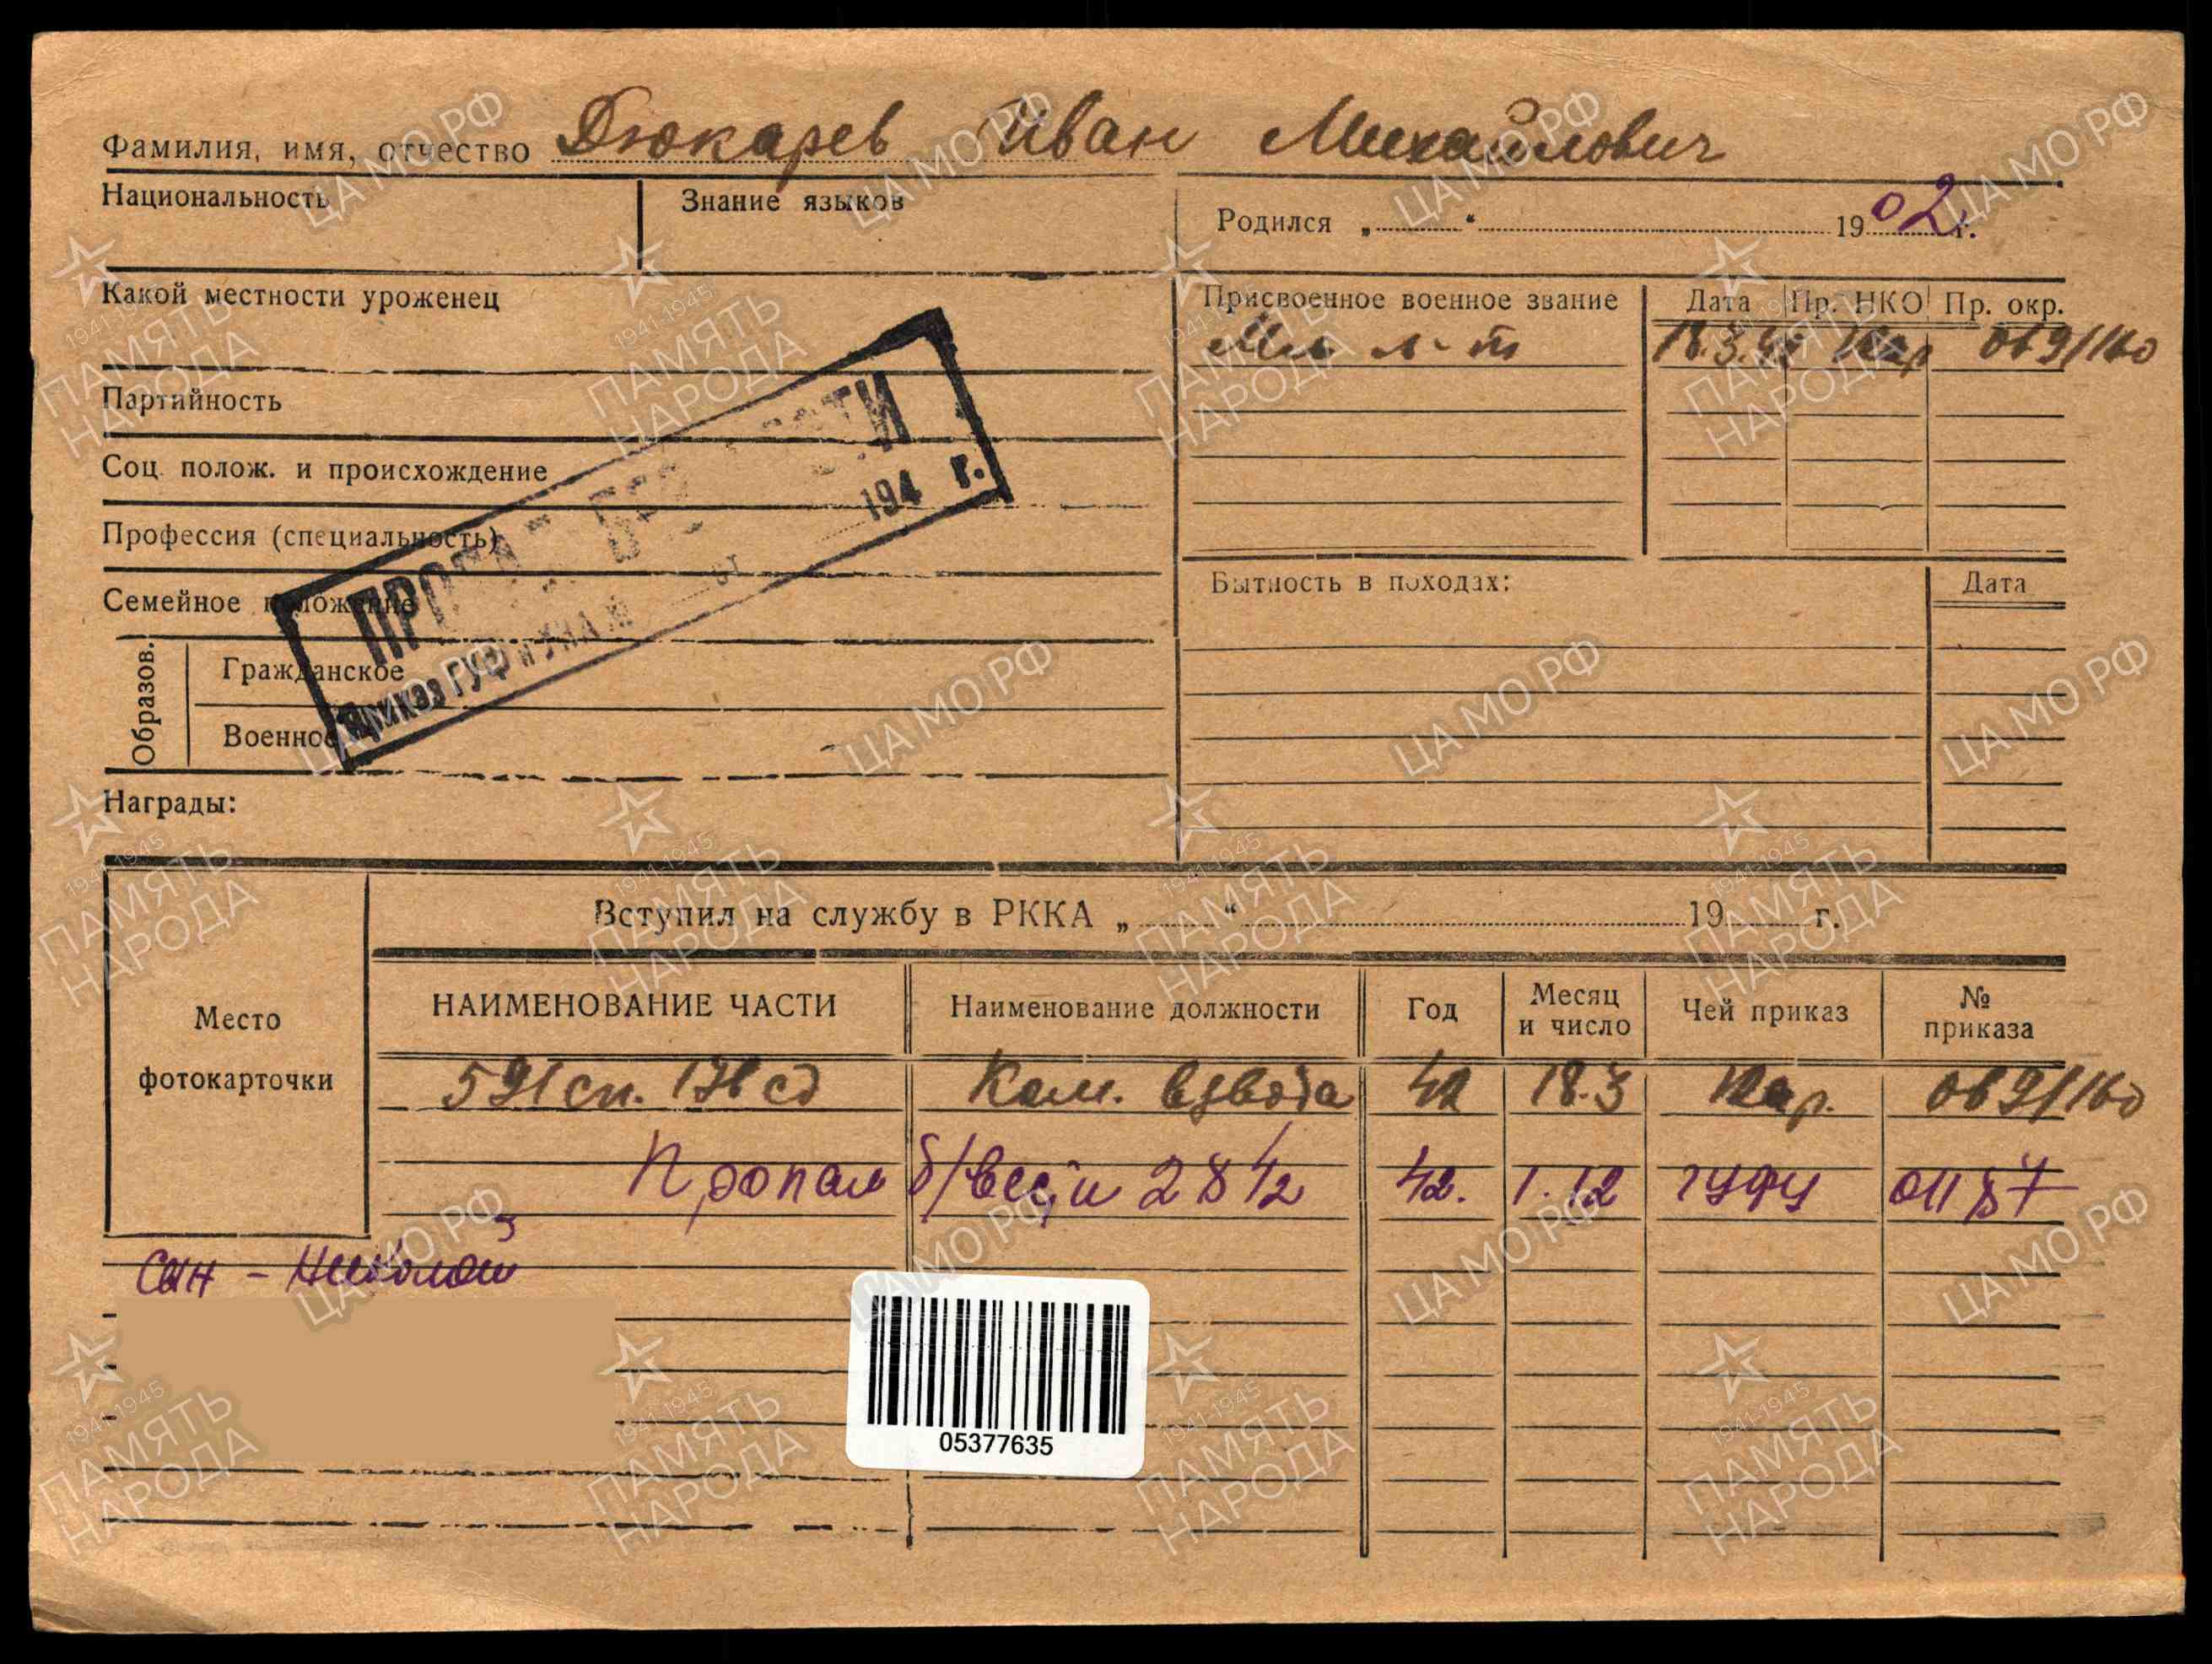 Фамилия, имя, отчество Дюкарев Иван Михайлович
Национальность
Знание языков
Родился „ “ 1902 г.
Какой местности уроженец
Партийность
Соц. полож. и происхождение
Профессия (специальность)
Семейное положение
Образов.
Гражданское
Военное
Награды:
ПРОПАЛ БЕЗ ВЕСТИ
Приказ ГУФ и УКА № от 194 г.
Присвоенное военное звание Дата Пр. НКО Пр. окр.
Мл. л-т 18.3.42 Кар 089/160
Бытность в походах: Дата
Вступил на службу в РККА „ “ 19 г.
Место
фотокарточки
НАИМЕНОВАНИЕ ЧАСТИ Наименование должности Год Месяц и число Чей приказ № приказа
591 сп. 178 сд Ком. взвода 42 18.3 Кар. 089/160
Пропал б/вести 42. 1.12 ГУФУ
Сын - Николай
05377635
ЦА МО РФ
1941-1945
ПАМЯТЬ
НАРОДА